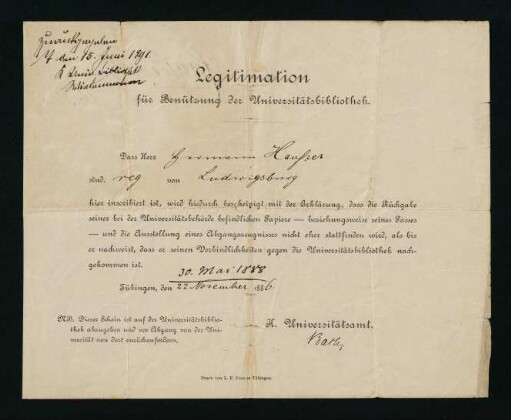 Zurückgegeben
T. den 15. Juni 1891.
K. Univ. Bibliothek
Legitimation
für Benützung der Universitätsbibliothek.
Dass Herr Hermann Hausser
stud. reg von Ludwigsburg
hier inscribiert ist, wird hiedurch bescheinigt mit der Erklärung, dass die Rückgabe
seiner bei der Universitätsbehörde befindlichen Papiere — beziehungsweise seines Passes
— und die Ausstellung eines Abgangszeugnisses nicht eher stattfinden wird, als bis
er nachweist, dass er seinen Verbindlichkeiten gegen die Universitätsbibliothek nach-
gekommen ist.
30. Mai 1888
Tübingen, den 22 November 1886
NB. Dieser Schein ist auf der Universitätsbiblio-
thek abzugeben und vor Abgang von der Uni-
versität von dort zurückzufordern.
K. Universitätsamt.
Druck von L. F. Fues in Tübingen.